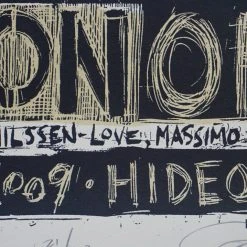 ONO
NILSSEN-LOVE, MASSIMO
2009 · HIDEO